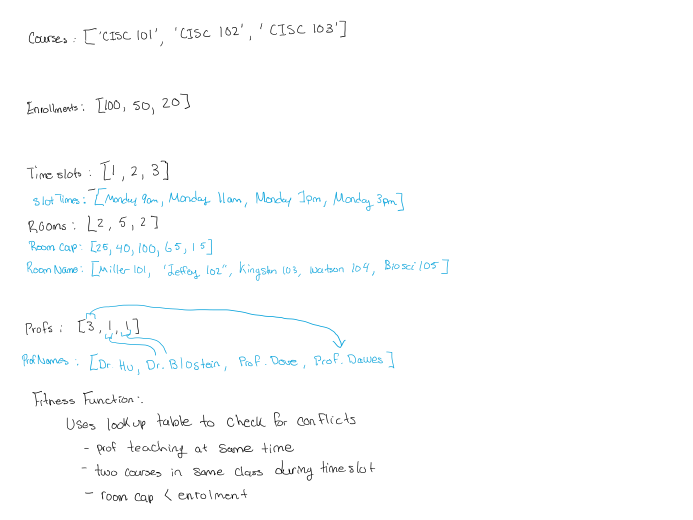 Courses : ['CISC 101', 'CISC 102', 'CISC 103']
Enrollments: [100, 50, 20]
Time slots : [1, 2, 3]
Slot Times: [Monday 9am, Monday 11am, Monday 1pm, Monday 3pm]
Rooms : [2, 5, 2]
Room Cap: [25, 40, 100, 65, 15]
Room Name: [Miller 101, "Jeffey 102", Kingston 103, Watson 104, Biosci 105]
Profs : [3, 1, 1]
Prof Names : [Dr Hu, Dr. Blostein, Prof. Dove, Prof. Dawes]
Fitness Function:
Uses lookup table to check for conflicts
- prof teaching at same time
- two courses in same class during timeslot
- room cap < enrolment